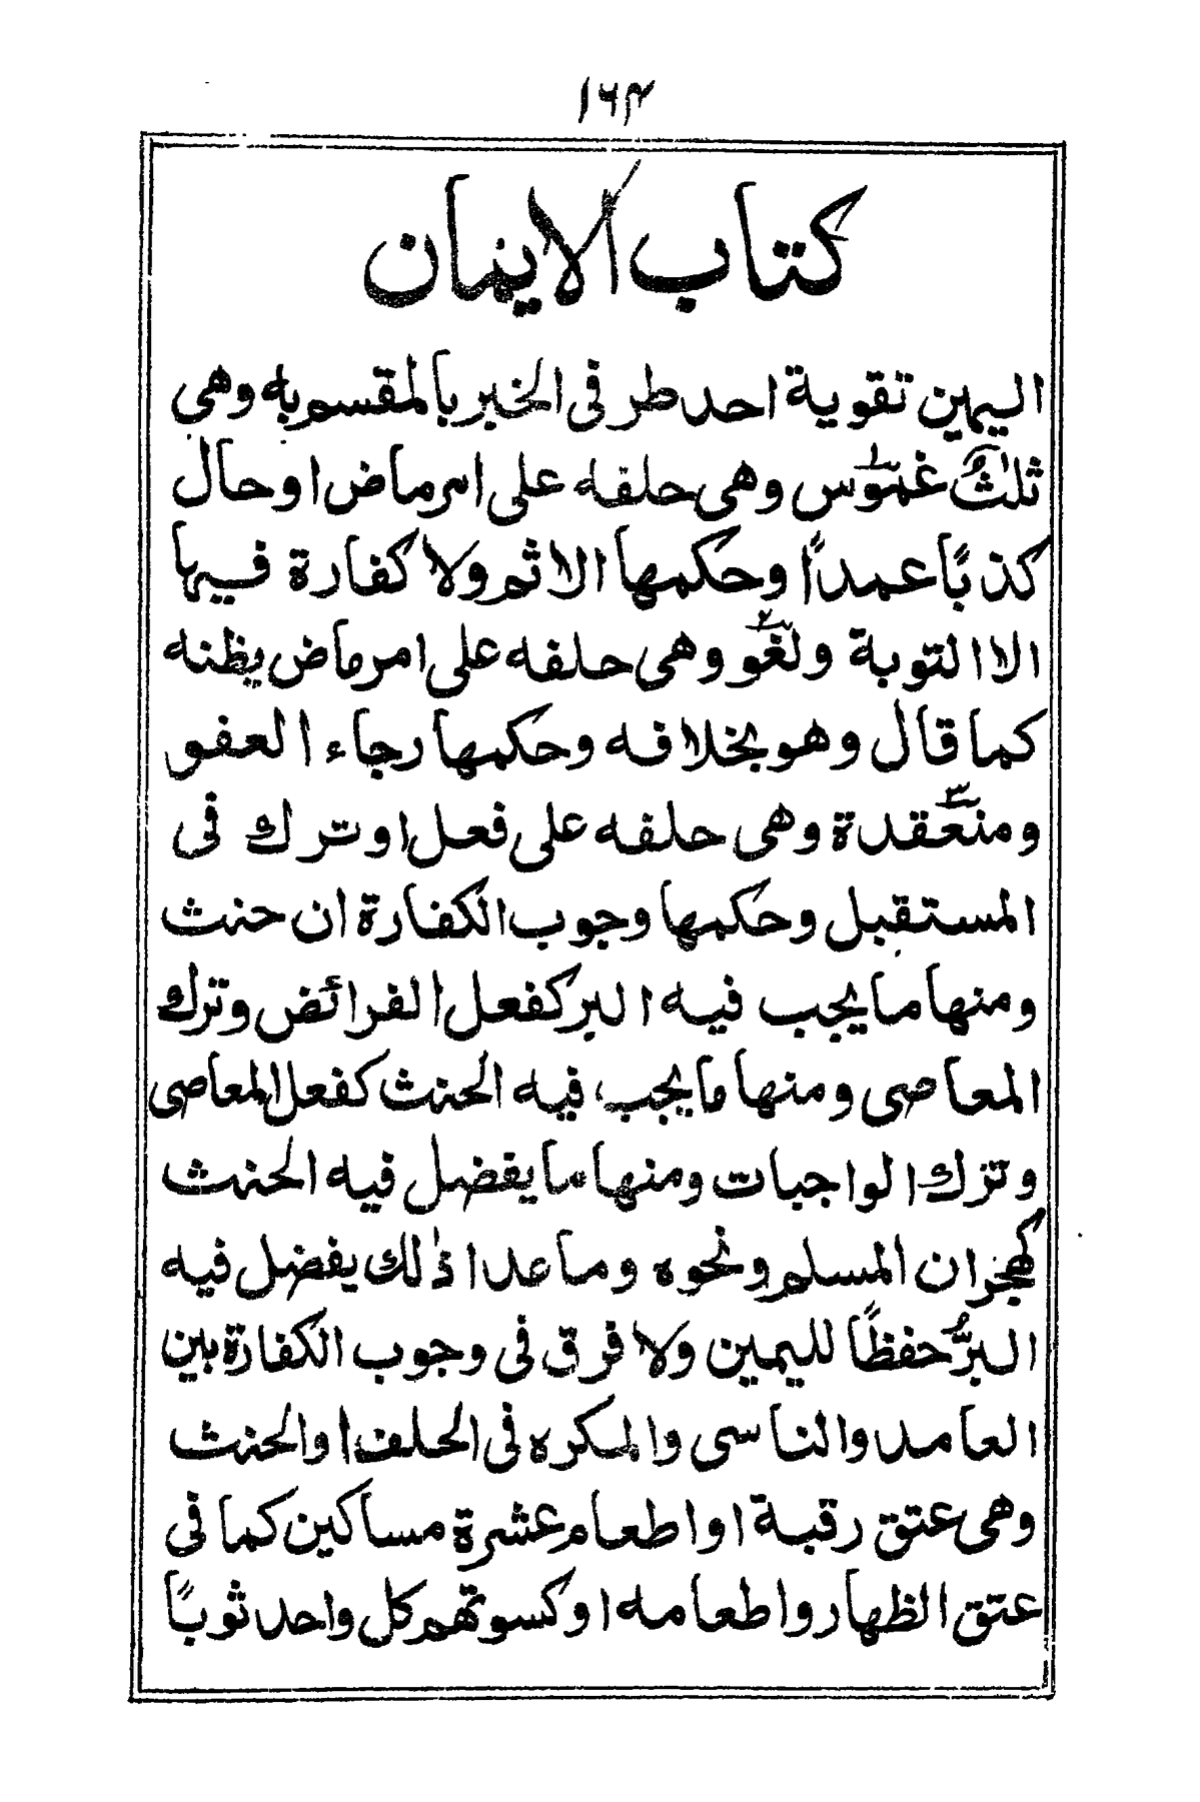 ١٦٤
كتاب الايمان
اليمين تقوية احد طر فى الخبر بالمقسم به وهى
ثلٰثٌ غموس وهى حلفه على امر ماض او حال
كذبًا عمدًا وحكمها الاثم ولا كفارة فيها
الا التوبة ولغو وهى حلفه على امر ماض يظنه
كما قال وهو بخلافه وحكمها رجاء العفو
ومنعقدة وهى حلفه على فعل او ترك فى
المستقبل وحكمها وجوب الكفارة ان حنث
ومنها ما يجب فيه البر كفعل الفرائض وترك
المعاصى ومنها ما يجب فيه الحنث كفعل المعاصى
وترك الواجبات ومنها ما يفضل فيه الحنث
كهجران المسلم ونحوه وما عدا ذٰلك يفضل فيه
البرُّ حفظًا لليمين ولا فرق فى وجوب الكفارة بين
العامد والناسى والمكره فى الحلف او الحنث
وهى عتق رقبة او اطعام عشرة مساكين كما فى
عتق الظهار واطعامه او كسوتهم كل واحد ثوبًا